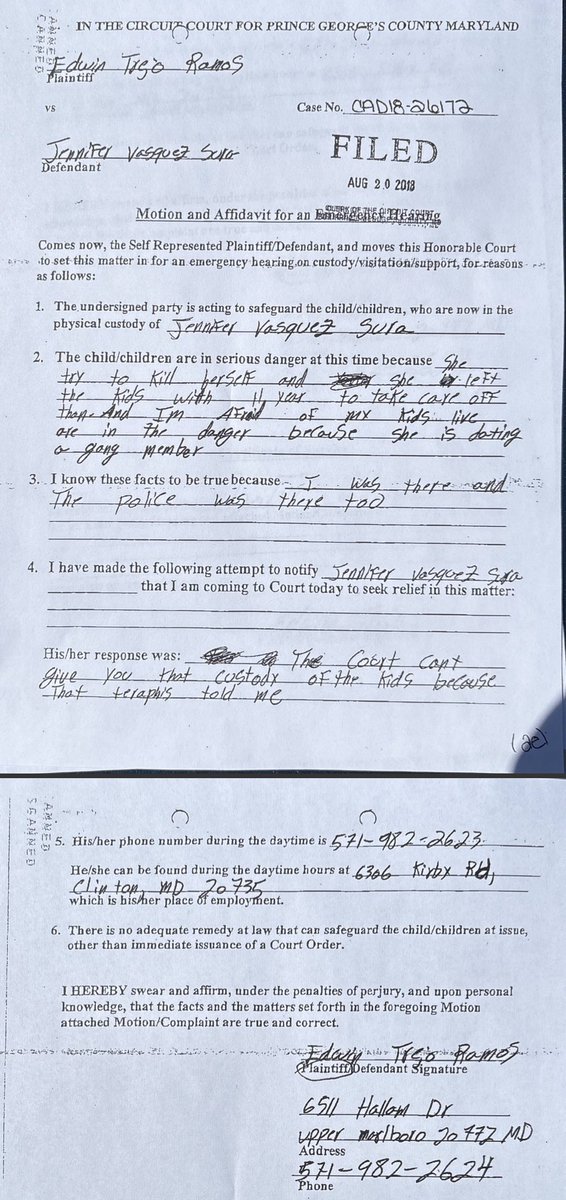 IN THE CIRCUIT COURT FOR PRINCE GEORGE'S COUNTY MARYLAND
Edwin Trejo Ramos
Plaintiff
vs
Case No. CAD18-26172
Jennifer Vasquez Sura
Defendant
FILED
AUG 20 2018
Motion and Affidavit for an Emergency Hearing
Comes now, the Self Represented Plaintiff/Defendant, and moves this Honorable Court
to set this matter in for an emergency hearing on custody/visitation/support, for reasons
as follows:
1. The undersigned party is acting to safeguard the child/children, who are now in the
physical custody of Jennifer Vasquez Sura
2. The child/children are in serious danger at this time because She
try to Kill herself and she left
the Kids with 11 year to take care OFF
them And Im Afraid of my Kids live
are in the danger because she is dating
a gang member
3. I know these facts to be true because I was there and
The police was there too
4. I have made the following attempt to notify Jennifer Vasquez Sura
that I am coming to Court today to seek relief in this matter:
His/her response was: The Court cant
give you that custody of the Kids because
that teraphis told me
SCANNED
5. His/her phone number during the daytime is 571-982-2623
He/she can be found during the daytime hours at 6306 Kirbx Rd,
Clinton, MD 20735
which is his/her place of employment.
6. There is no adequate remedy at law that can safeguard the child/children at issue,
other than immediate issuance of a Court Order.
I HEREBY swear and affirm, under the penalties of perjury, and upon personal
knowledge, that the facts and the matters set forth in the foregoing Motion
attached Motion/Complaint are true and correct.
Edwin Trejo Ramos
Plaintiff/Defendant Signature
6511 Hallam Dr
upper marlboro 20772 MD
Address
571-982-2624
Phone